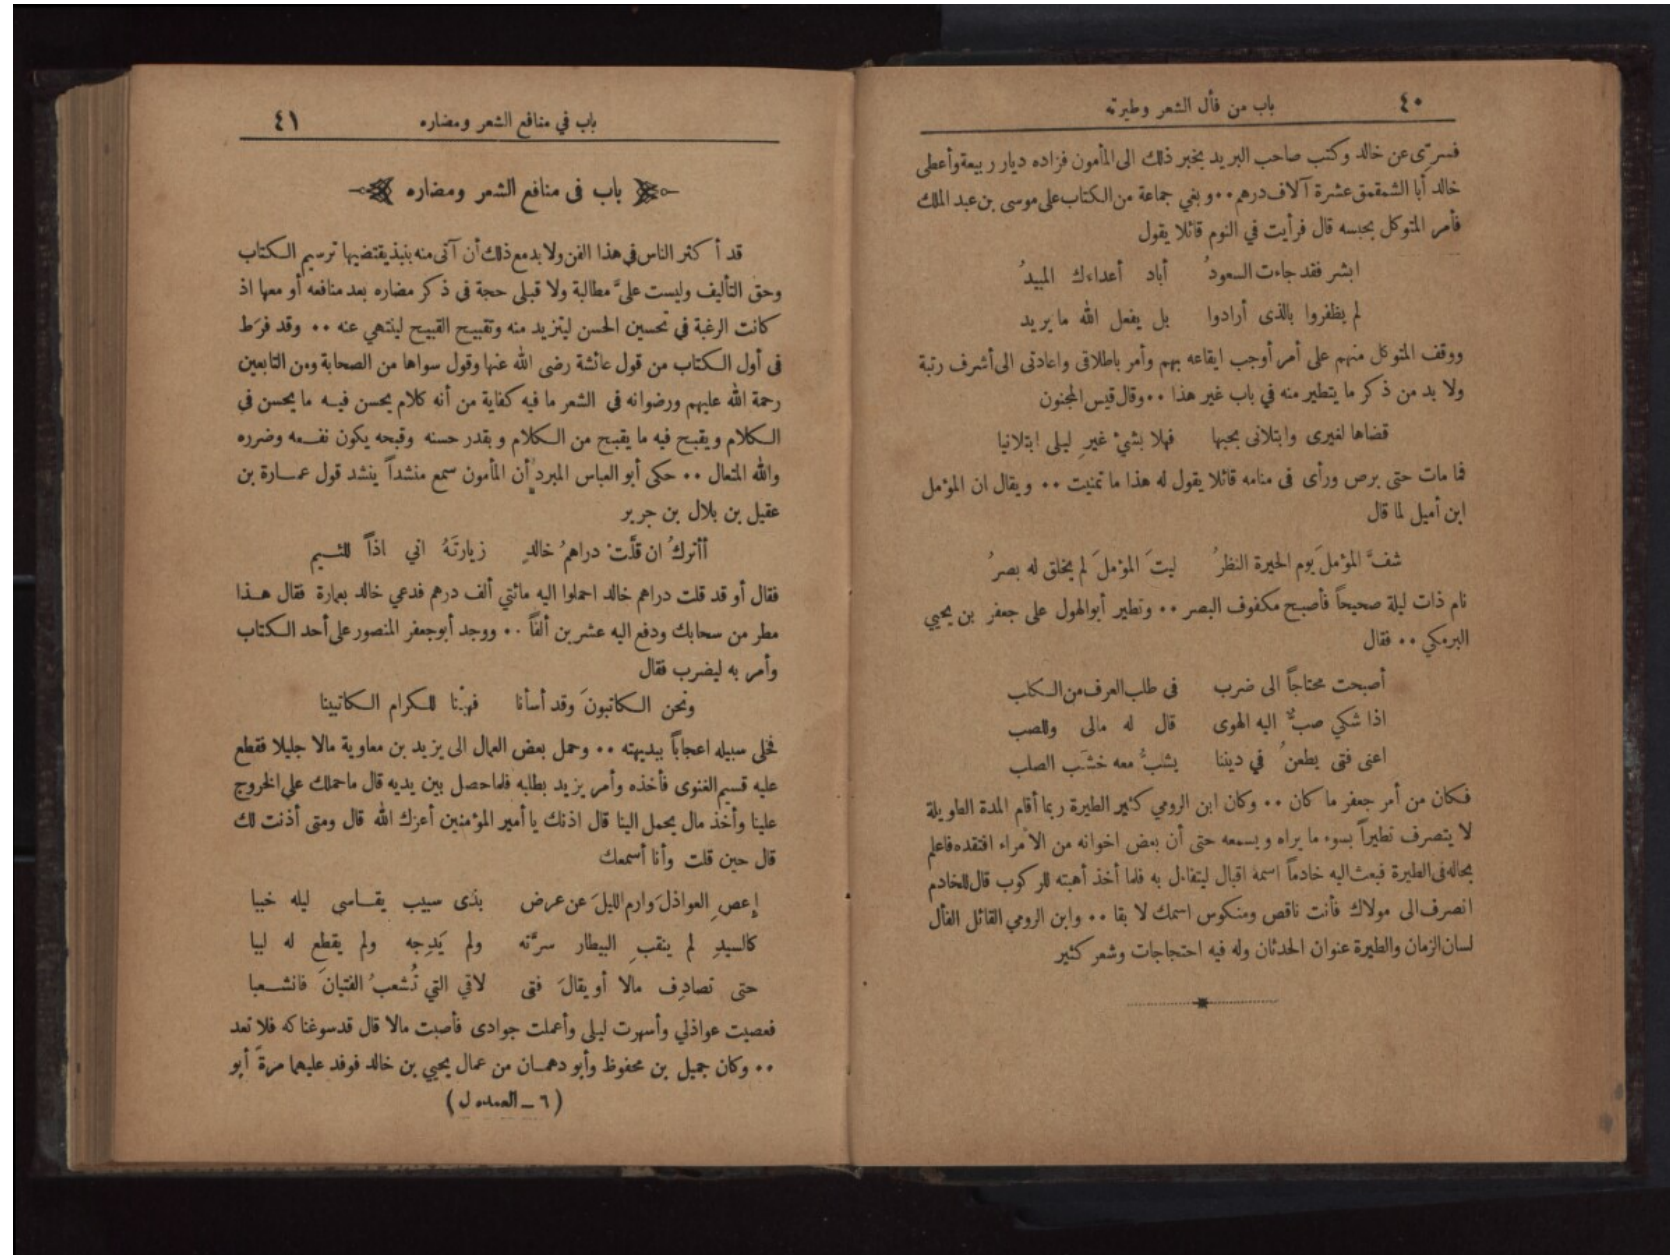 ٤٠ باب من فأل الشعر وطيرته
فسرّى عن خالد وكتب صاحب البريد بخبر ذلك الى المأمون فزاده ديار ربيعة وأعطى
خالد أبا الشمقمق عشرة آلاف درهم ٠٠ وبغي جماعة من الكتاب على موسى بن عبد الملك
فأمر المتوكل بحبسه قال فرأيت في النوم قائلا يقول
ابشر فقد جاءت السعودُ أباد أعداءك المبيدُ
لم يظفروا بالذى أرادوا بل يفعل الله ما يريد
ووقف المتوكل منهم على أمر أوجب ايقاعه بهم وأمر باطلاقى واعادتى الى أشرف رتبة
ولا بد من ذكر ما يتطير منه في باب غير هذا ٠٠ وقال قيس المجنون
قضاها لغيرى وابتلانى بحبها فهلا بشئ غيرِ ليلى ابتلانيا
فما مات حتى برص ورأى فى منامه قائلا يقول له هذا ما تمنيت ٠٠ ويقال ان المؤمل
ابن أميل لما قال
شفَّ المؤملَ يوم الحيرة النظرُ ليتَ المؤملَ لم يخلق له بصرُ
نام ذات ليلة صحيحاً فأصبح مكفوف البصر ٠٠ وتطير أبوالهول على جعفر بن يحيي
البرمكي ٠٠ فقال
أصبحت محتاجاً الى ضرب فى طلب العرف من الكلب
اذا شكي صبٌّ اليه الهوى قال له مالى وللصب
اعنى فتى يطعنُ في ديننا يشبُّ معه خشَب الصلب
فكان من أمر جعفر ما كان ٠٠ وكان ابن الرومي كثير الطيرة ربما أقام المدة الطويلة
لا يتصرف تطيراً بسوء ما يراه ويسمعه حتى أن بعض اخوانه من الأمراء افتقده فاعلم
بحاله فى الطيرة فبعث اليه خادماً اسمه اقبال ليتفاءل به فلما أخذ أهبته للركوب قال للخادم
انصرف الى مولاك فأنت ناقص ومنكوس اسمك لا بقا ٠٠ وابن الرومي القائل الفأل
لسان الزمان والطيرة عنوان الحدثان وله فيه احتجاجات وشعر كثير
باب في منافع الشعر ومضاره ٤١
باب فى منافع الشعر ومضاره
قد أكثر الناس في هذا الفن ولا بد مع ذلك أن آتى منه بنبذ يقتضيها ترسيم الكتاب
وحق التأليف وليست علىَّ مطالبة ولا قبلى حجة فى ذكر مضاره بعد منافعه أو معها اذ
كانت الرغبة في تحسين الحسن ليتزيد منه وتقبيح القبيح لينتهي عنه ٠٠ وقد فرَط
فى أول الكتاب من قول عائشة رضى الله عنها وقول سواها من الصحابة ومن التابعين
رحمة الله عليهم ورضوانه فى الشعر ما فيه كفاية من أنه كلام يحسن فيه ما يحسن في
الكلام ويقبح فيه ما يقبح من الكلام وبقدر حسنه وقبحه يكون نفعه وضرره
والله المتعال ٠٠ حكى أبو العباس المبرد أن المأمون سمع منشداً ينشد قول عمارة بن
عقيل بن بلال بن جرير
أأتركُ ان قلَّت دراهمُ خالدٍ زيارتَهُ اني اذاً للئيم
فقال أو قد قلت دراهم خالد احملوا اليه مائتي ألف درهم فدعي خالد بعمارة فقال هذا
مطر من سحابك ودفع اليه عشرين ألفاً ٠٠ ووجد أبوجعفر المنصور على أحد الكتاب
وأمر به ليضرب فقال
ونحن الكاتبونَ وقد أسأنا فهبْنا للكرام الكاتبينا
فخلى سبيله اعجاباً ببديهته ٠٠ وحمل بعض العمال الى يزيد بن معاوية مالا جليلا فقطع
عليه قسيم الغنوى فأخذه وأمر يزيد بطلبه فلما حصل بين يديه قال ما حملك علي الخروج
علينا وأخذ مال يحمل الينا قال اذنك يا أمير المؤمنين أعزك الله قال ومتى أذنت لك
قال حين قلت وأنا أسمعك
إعصِ العواذلَ وارم الليلَ عن عرض بذى سبيب يقاسي ليله خببا
كالسيدِ لم ينقبِ البيطار سرَّته ولم يَدجه ولم يقطع له لببا
حتى تصادِف مالا أو يقالَ فتى لاقي التي تُشعبُ الفتيانَ فانشعبا
فعصيت عواذلي وأسهرت ليلى وأعملت جوادى فأصبت مالا قال قد سوغناكه فلا تعد
٠٠ وكان جميل بن محفوظ وأبو دهمان من عمال يحيي بن خالد فوفد عليهما مرةً أبو
( ٦ ـ العمده ل )